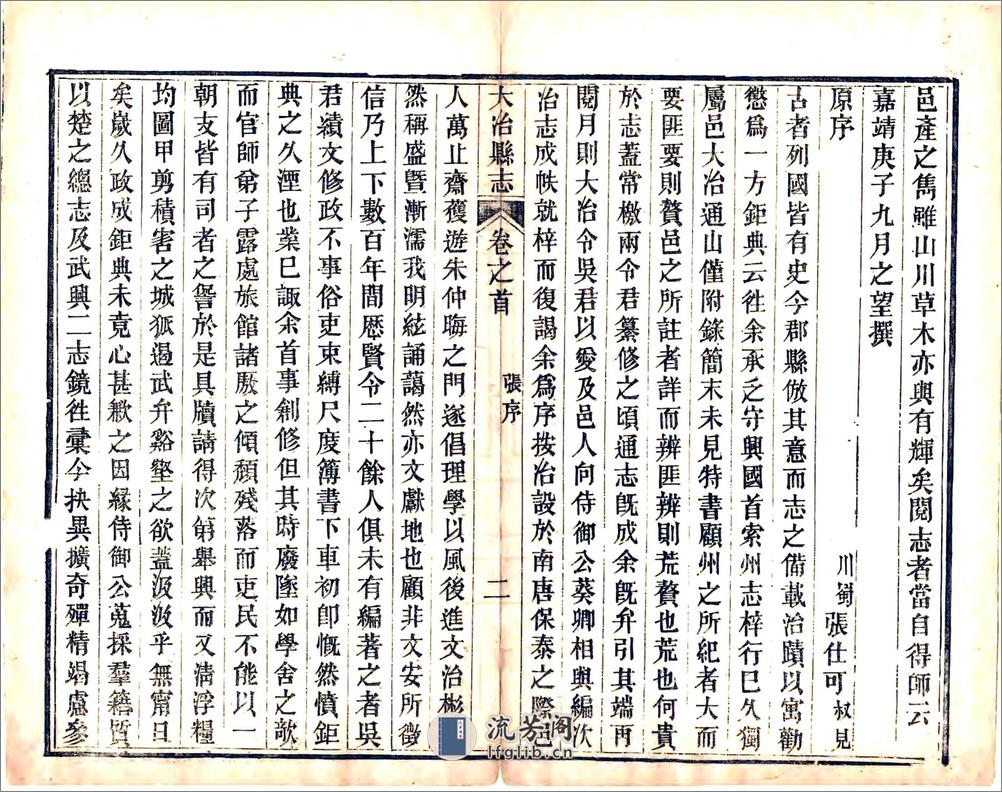 邑產之雋雖山川草木亦與有輝矣閱志者當自得師云
嘉靖庚子九月之望撰
原序
川蜀張仕可叔見
古者列國皆有史今郡縣倣其意而志之備載治蹟以寓勸
懲爲一方鉅典云徃余承乏守興國首索州志梓行巳久獨
屬邑大冶通山僅附錄簡末未見特書顧州之所紀者大而
要匪要則贅邑之所註者詳而辨匪辨則荒贅也荒也何貴
於志葢常檄兩令君纂修之頃通志旣成余旣弁引其端再
閱月則大冶令吳君以爰及邑人向侍御公葵卿相與編次
冶志成帙就梓而復謁余爲序按冶設於南唐保泰之際邑
大冶縣志
卷之首
張序
二
人萬止齋獲遊朱仲晦之門遂倡理學以風後進文治彬
然稱盛暨漸濡我明絃誦藹然亦文獻地也顧非文安所徵
信乃上下數百年間歷賢令二十餘人俱未有編著之者吳
君績文修政不事俗吏束縛尺度簿書下車初卽慨然憤鉅
典之久湮也業巳諏余首事創修但其時廢墜如學舍之欹
而官師弟子露處旅館諸厫之傾頹殘落而吏民不能以一
朝支皆有司者之詧於是具牘請得次第舉興而又淸浮糧
均圖甲剪積害之城狐遏武弁谿壑之欲葢汲汲乎無寗日
矣歲久政成鉅典未竟心甚歉之因緣侍御公蒐採羣籍質
以楚之總志及武興二志鏡徃彙今抉異擴奇殫精竭慮參
流芳阁
lfglib.cn